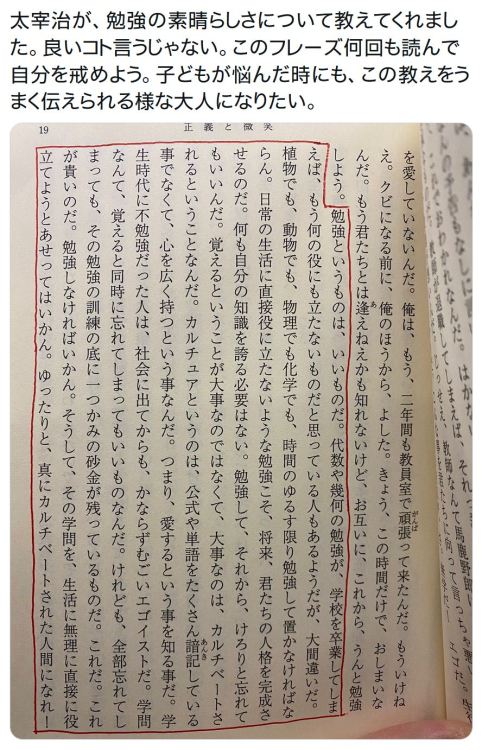 太宰治が、勉強の素晴らしさについて教えてくれまし
た。良いコト言うじゃない。このフレーズ何回も読んで
自分を戒めよう。子どもが悩んだ時にも、この教えをう
まく伝えられる様な大人になりたい。
19
正義と微笑
を愛していないんだ。俺は、もう、二年間も教員室で頑張って来たんだ。もういけね
え。クビになる前に、俺のほうから、よした。きょう、この時間だけで、おしまいな
んだ。もう君たちとは逢えねえかも知れないけど、お互いに、これから、うんと勉強
しよう。勉強というものは、いいものだ。代数や幾何の勉強が、学校を卒業してしま
えば、もう何の役にも立たないものだと思っている人もあるようだが、大間違いだ。
植物でも、動物でも、物理でも化学でも、時間のゆるす限り勉強して置かなければな
らん。日常の生活に直接役に立たないような勉強こそ、将来、君たちの人格を完成さ
せるのだ。何も自分の知識を誇る必要はない。勉強して、それから、けろりと忘れて
もいいんだ。覚えるということが大事なのではなくて、大事なのは、カルチベートさ
れるということなんだ。カルチュアというのは、公式や単語をたくさん暗記している
事でなくて、心を広く持つという事なんだ。つまり、愛するという事を知る事だ。学
生時代に不勉強だった人は、社会に出てからも、かならずむごいエゴイストだ。学問
なんて、覚えると同時に忘れてしまってもいいものなんだ。けれども、全部忘れてし
まっても、その勉強の訓練の底に一つかみの砂金が残っているものだ。これだ。これ
が貴いのだ。勉強しなければいかん。そうして、その学問を、生活に無理に直接に役
立てようとあせってはいかん。ゆったりと、真にカルチベートされた人間になれ！